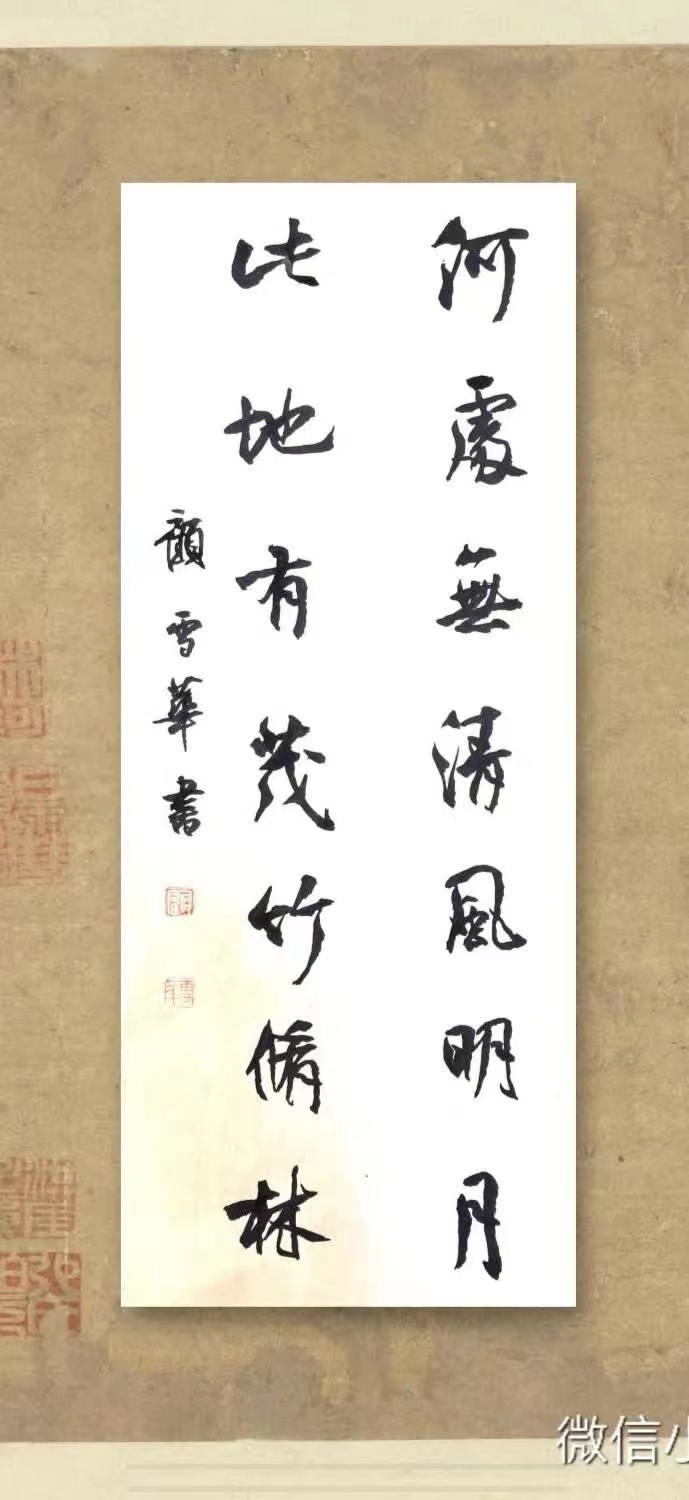 何處無清風明月
此地有茂竹脩林
顧雪華書
微信小